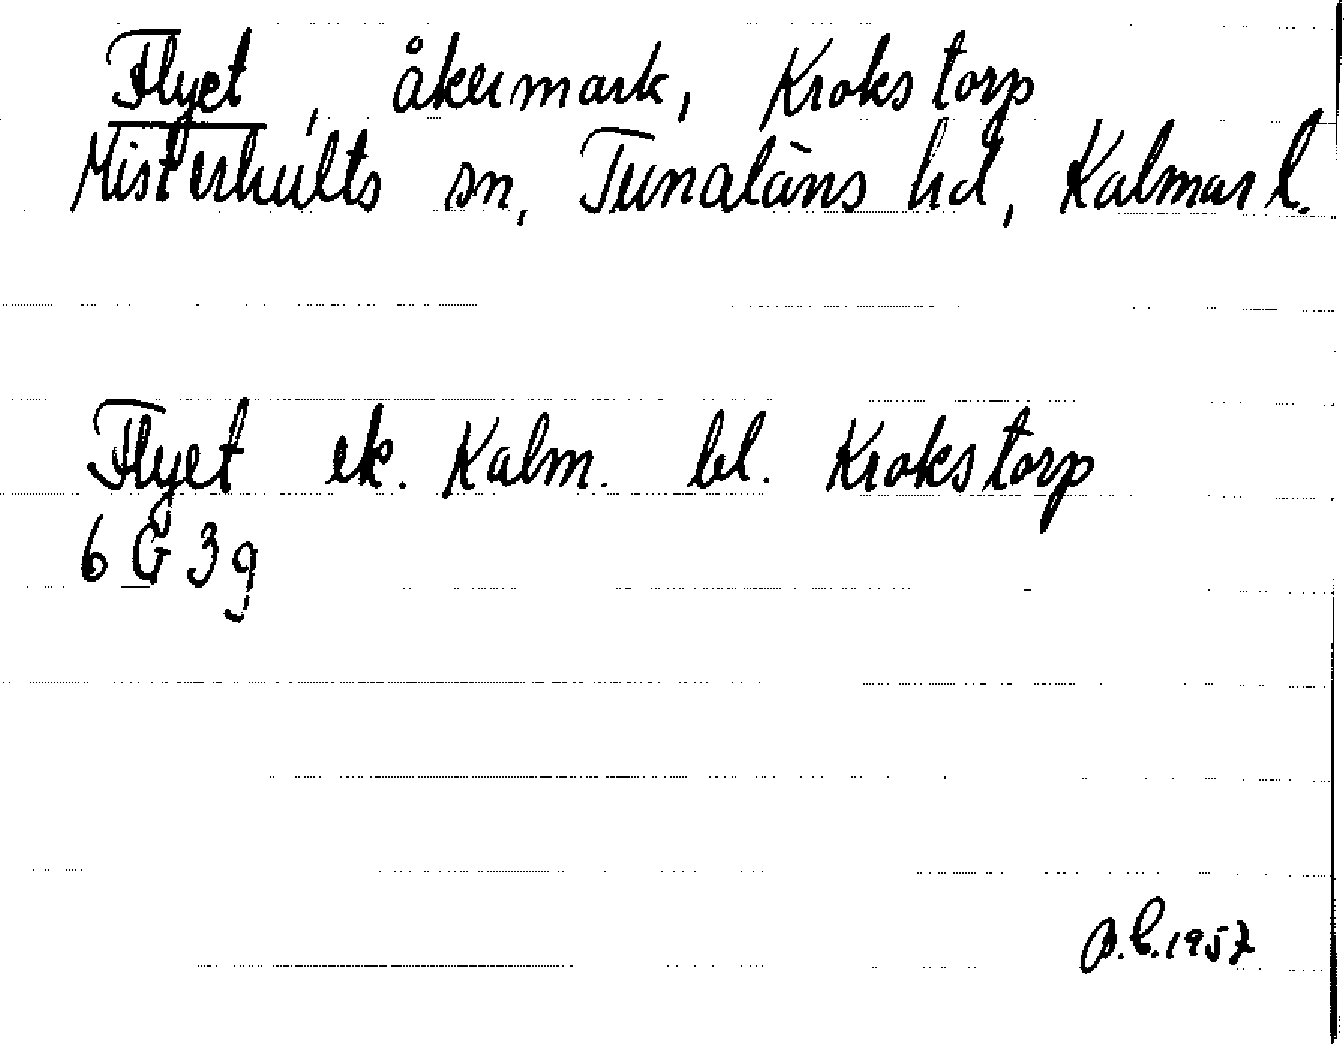 Flyet, åkermark, Krokstorp
Misterhults sn, Tunaläns hd, Kalmar l.
Flyet ek. Kalm. bl. Krokstorp
6 G 3g
1957